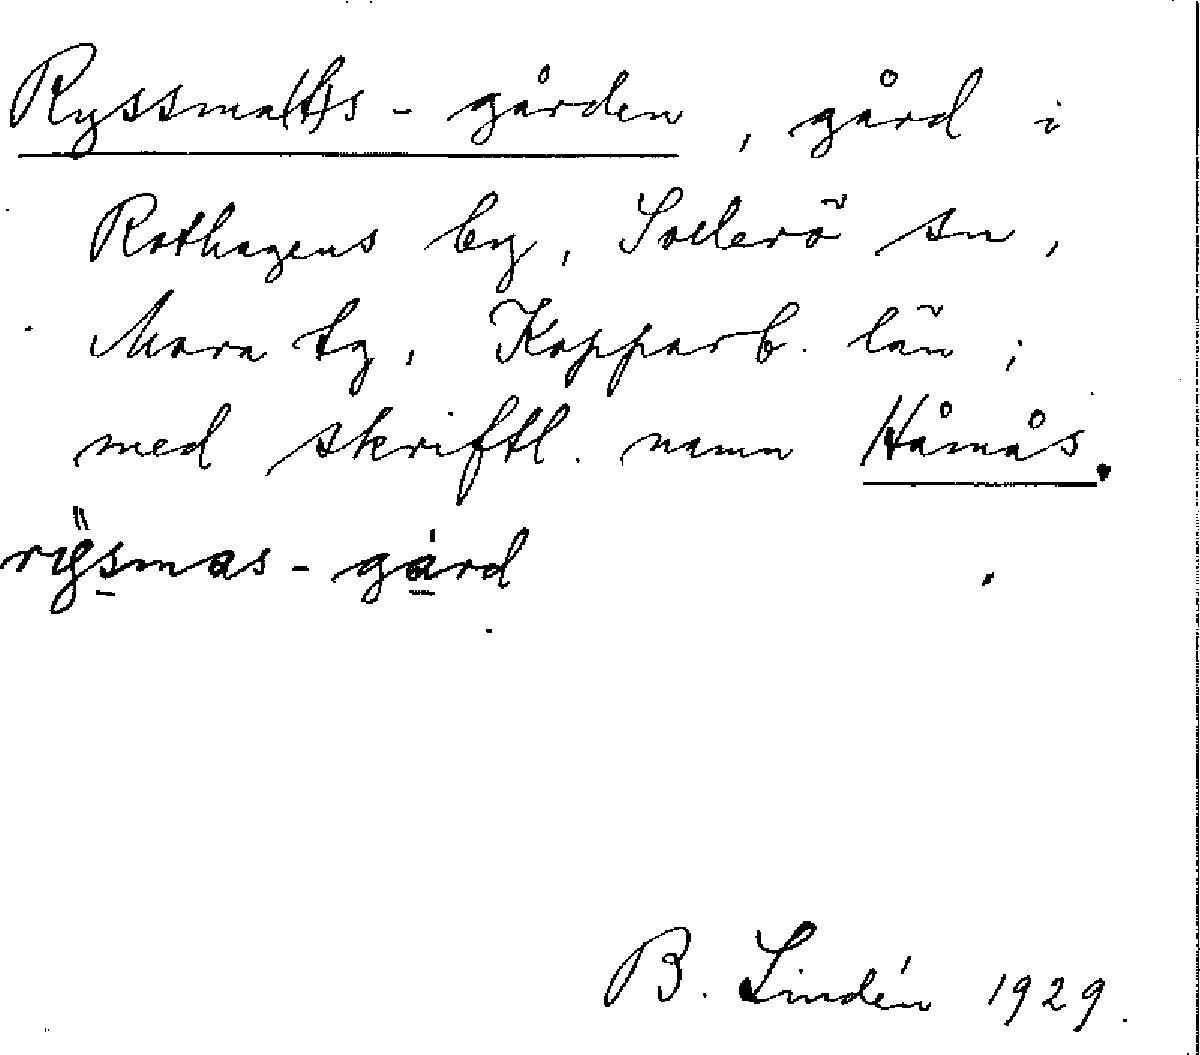 Ryssma(t)s-gården, gård i
Rothagens by, Sollerö sn,
Mora tg, Kopparb. län;
med skriftl. namn Håmås.
B. Lindén 1929.